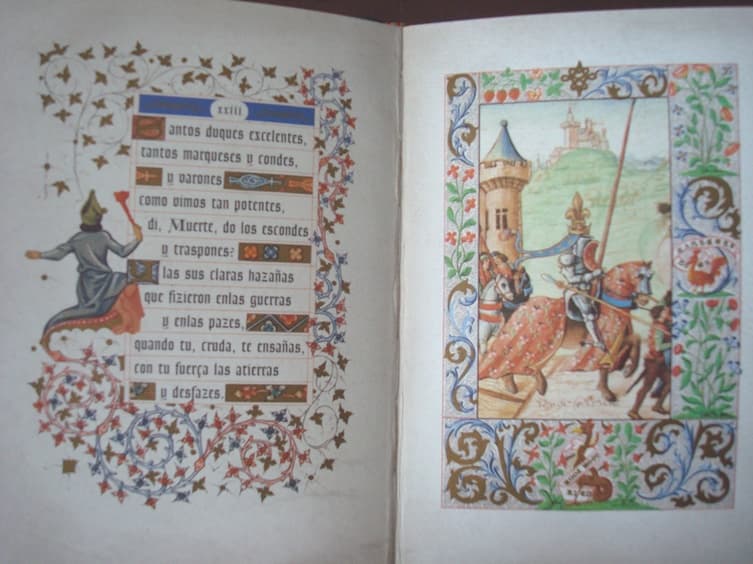 xxiii
antos duques excelentes,
tantos marqueses y condes,
y varones
como vimos tan potentes,
di, Muerte, do los escondes
y traspones?
las sus claras hazañas
que fizieron enlas guerras
y enlas pazes,
quando tu, cruda, te ensañas,
con tu fuerça las atierras
y desfazes.